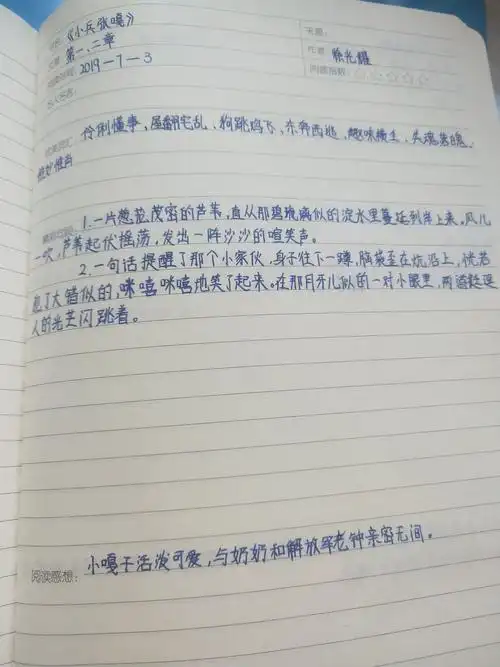 《小兵张嘎》
第一、二章
2019-7-3
作者 徐光耀
伶俐懂事、屋翻宅乱、狗跳鸡飞、东奔西逃、趣味横生、失魂落魄、
惟妙惟肖
1.一片葱茏茂密的芦苇,直从那碧琉璃似的淀水里蔓延到岸上来。风儿
一吹,芦苇起伏摇荡,发出一阵沙沙的喧笑声。
2.一句话提醒了那个小家伙,身子往下一蹲,脑袋歪在炕沿上,恍若
犯了大错似的,咪嘻咪嘻地笑了起来。在那月牙儿似的一对小眼里,两道
人的光芒闪跳着。
阅读感想: 小嘎子活泼可爱,与奶奶和解放军老钟亲密无间。